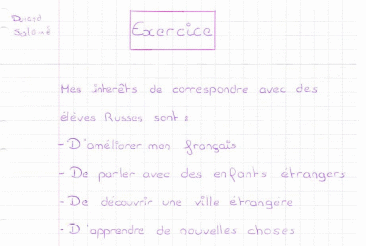 Exercice
Mes interêts de correspondre avec des
élèves Russes sont :
- D'améliorer mon français
- De parler avec des enfants étrangers
- De découvrir une ville étrangère
- D'apprendre de nouvelles choses